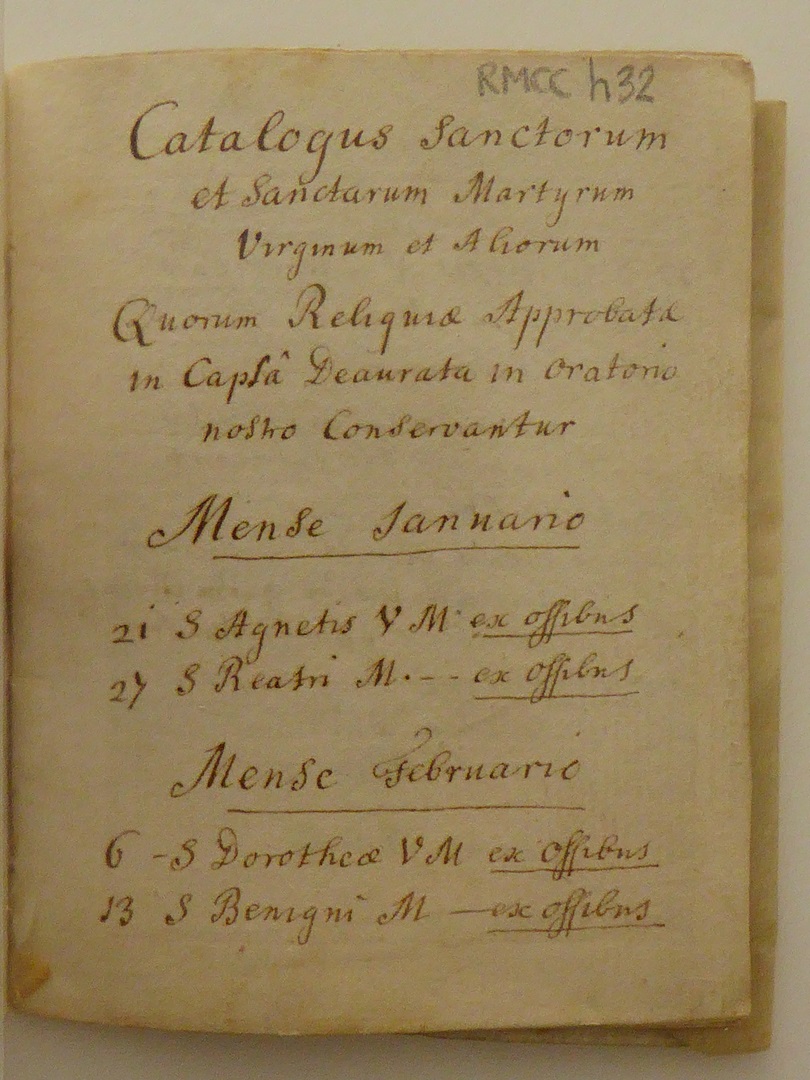 RMCC h32
Catalogus Sanctorum
et Sanctarum Martyrum
Virginum et Aliorum
Quorum Reliquiæ Approbatæ
in Capsâ Deaurata in Oratorio
nostro Conservantur
Mense Januario
21 S Agnetis V M ex ossibus
27 S Reatri M. -- ex ossibus
Mense Februario
6 - S Dorotheæ V M ex ossibus
13 S Benigni M — ex ossibus